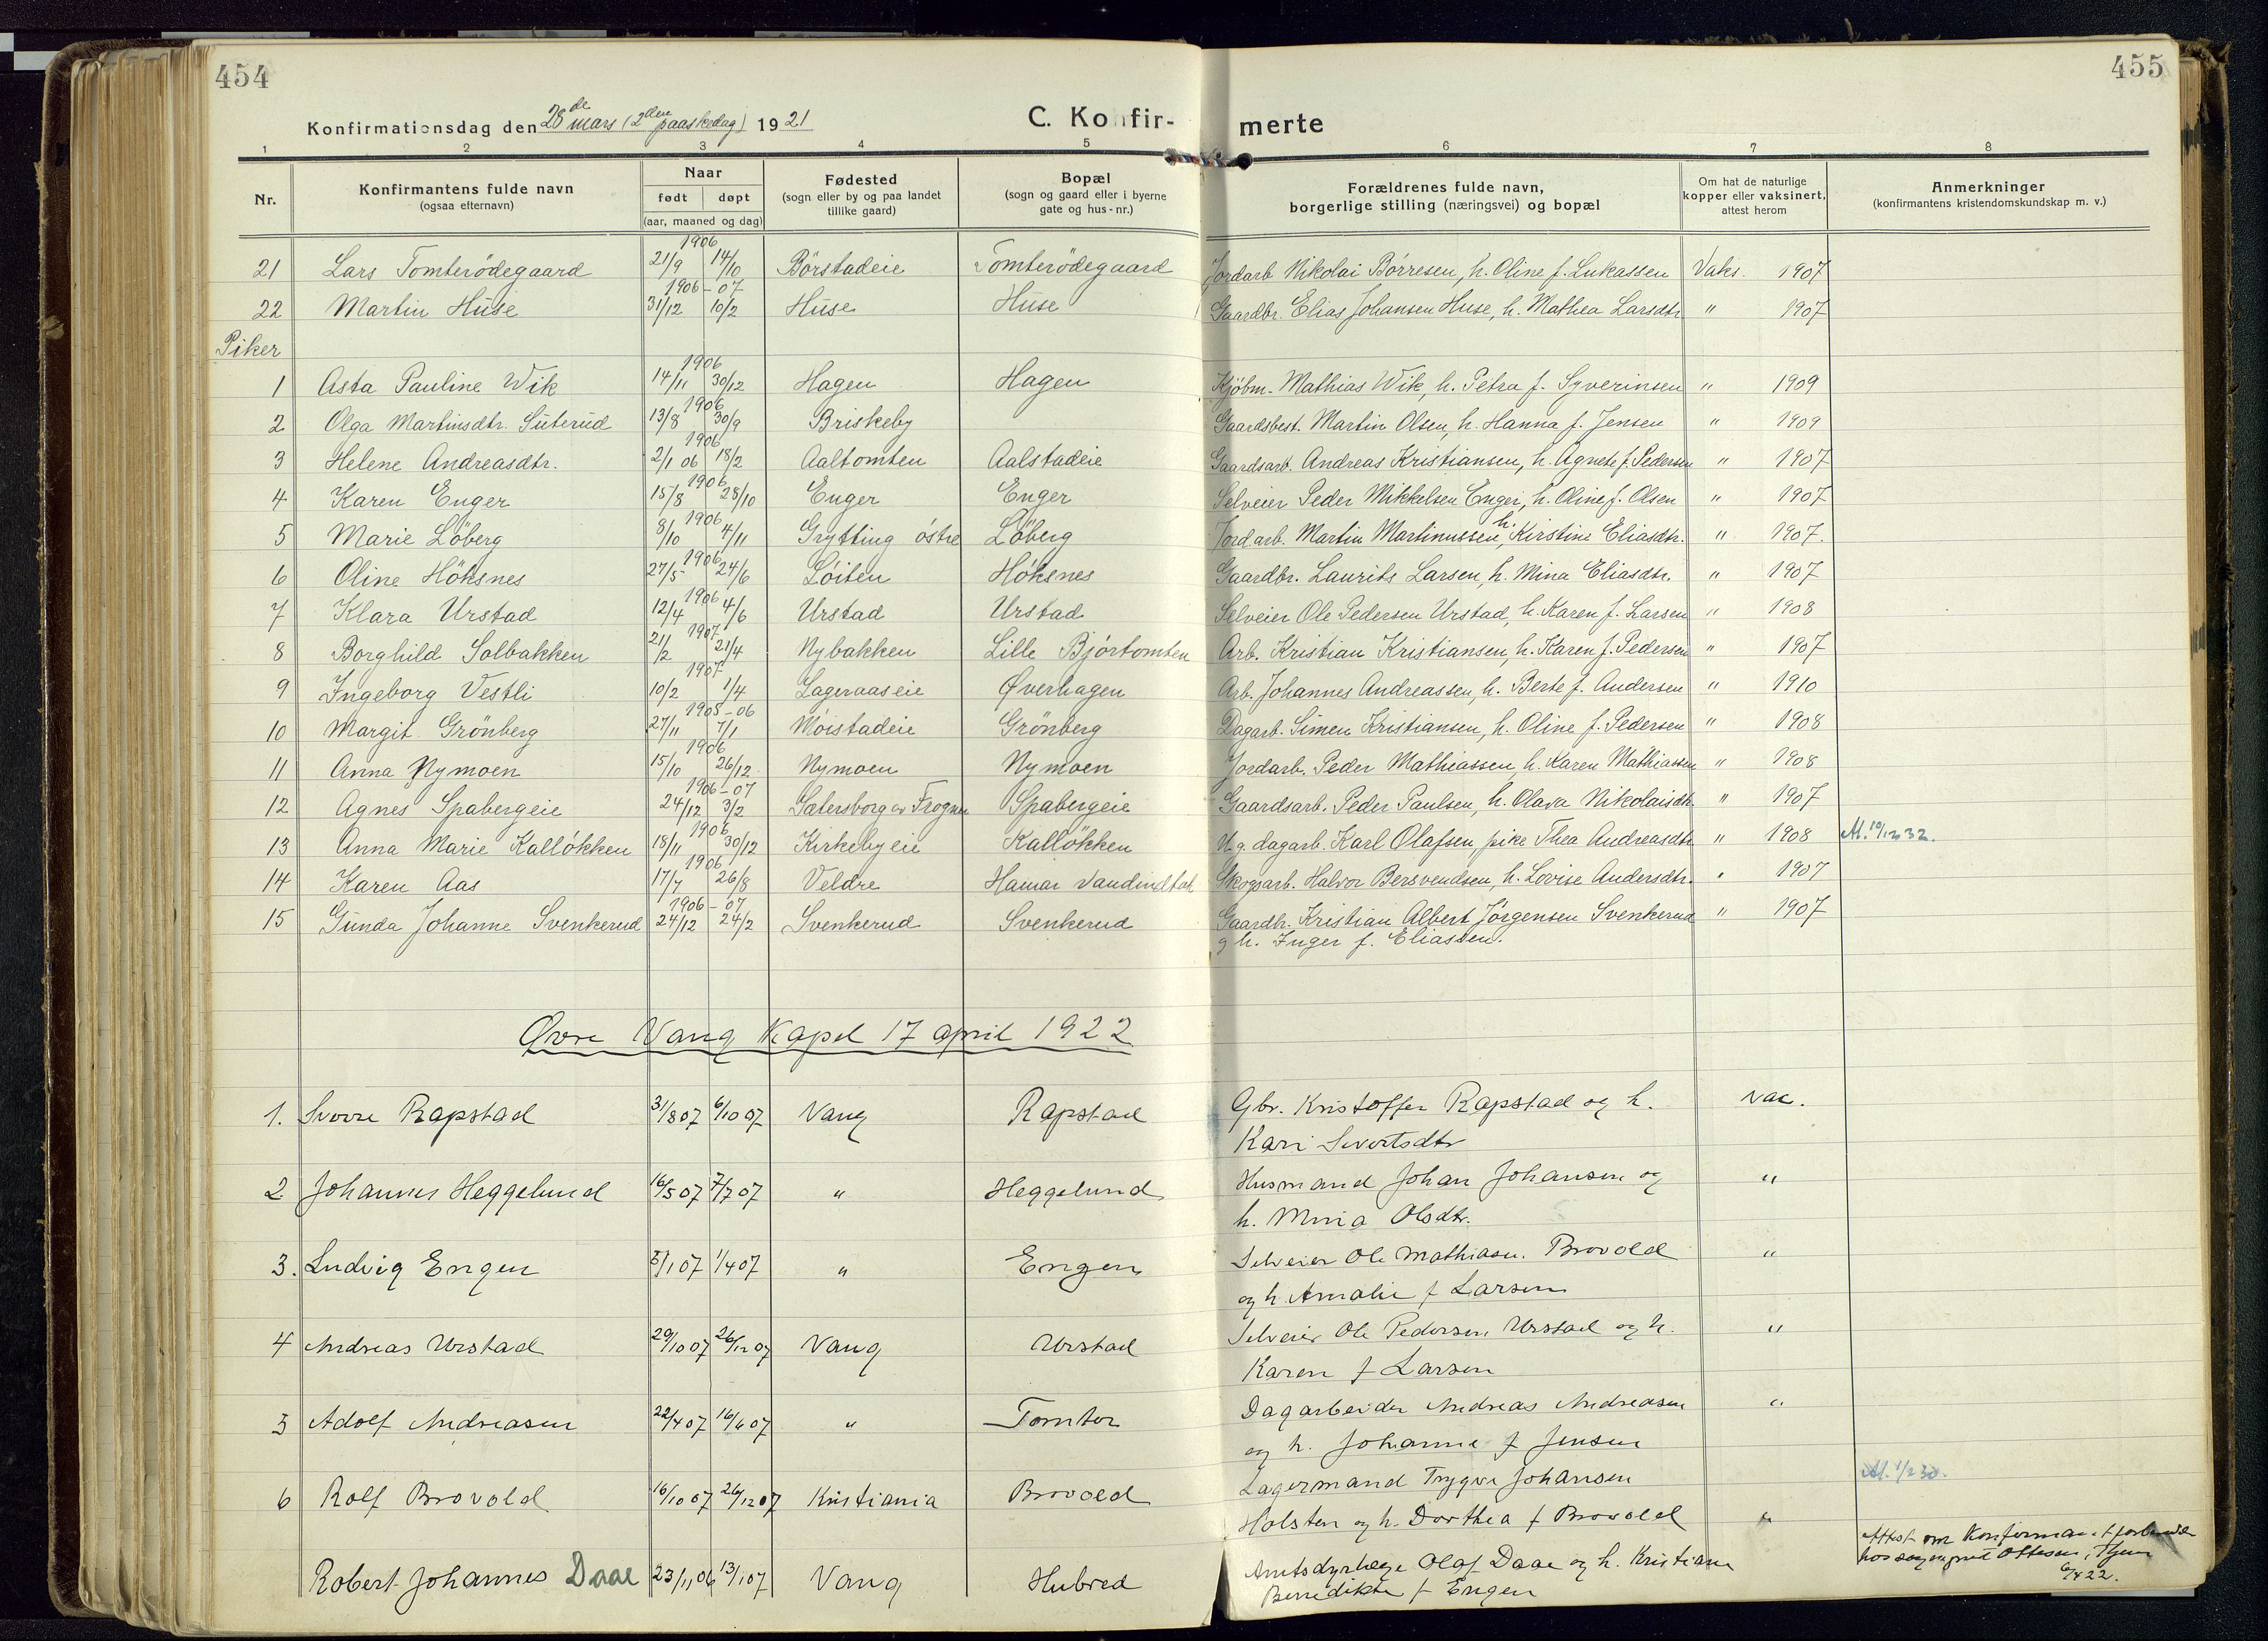 454
455
Konfirmationsdag den 28de mars (2den paaskedag) 1921
C. Konfir-
merte
1 2 3 4 5 6 7 8
Nr. Konfirmantens fulde navn (ogsaa efternavn) Naar født døpt (aar, maaned og dag) Fødested (sogn eller by og paa landet tillike gaard) Bopæl (sogn og gaard eller i byerne gate og hus-nr.) Forældrenes fulde navn, borgerlige stilling (næringsvei) og bopæl Om hat de naturlige kopper eller vaksinert, attest herom Anmerkninger (konfirmantens kristendomskundskap m. v.)
21 Lars Tomterödegaard 1906 21/9 14/10 Börstadeie Tomterödegaard Jordarb. Nikolai Börresen, h. Oline f. Lukassen Vaks. 1907
22 Martin Huse 1906-07 31/12 10/2 Huse Huse Gaardbr. Elias Johansen Huse, h. Mathea Larsdtr. " 1907
Piker
1 Asta Pauline Wik 1906 14/11 30/12 Hagen Hagen Kjöbm. Mathias Wik, h. Petra f. Syverinsen " 1909
2 Olga Martinsdtr. Suterud 1906 13/8 30/9 Briskeby Gaardsbest. Martin Olsen, h. Hanna f. Jensen " 1909
3 Helene Andreasdtr. 1906 2/1 06 18/2 Aaltomten Aalstadeie Gaardsarb. Andreas Kristiansen, h. Agnete f. Pedersen " 1907
4 Karen Enger 1906 15/8 28/10 Enger Enger Selveier Peder Mikkelsen Enger, h. Oline f. Olsen " 1907
5 Marie Löberg 1906 8/10 4/11 Grytting östre Löberg Jordarb. Martin Martinussen, h. Kirstine Eliasdtr. " 1907.
6 Oline Höksnes 1906 27/5 24/6 Löiten Höksnes Gaardbr. Laurits Larsen, h. Mina Eliasdtr. " 1907
7 Klara Urstad 1906 12/4 4/6 Urstad Urstad Selveier Ole Pedersen Urstad, h. Karen f. Larsen " 1908
8 Borghild Solbakken 1907 21/2 21/4 Nybakken Lille Bjørtomten Arb. Kristian Kristiansen, h. Karen f. Pedersen " 1907
9 Ingeborg Vestli 1907 10/2 1/4 Lageraaseie Øverhagen Arb. Johannes Andreassen, h. Berte f. Andersen " 1910
10 Margit Grönberg 1905-06 27/11 7/1 Möistadeie Grönberg Dagarb. Simen Kristiansen, h. Oline f. Pedersen " 1908
11 Anna Nymoen 1906 15/10 26/12 Nymoen Nymoen Jordarb. Peder Mathiassen, h. Karen Mathiassen " 1908
12 Agnes Spabergeie 1906-07 24/12 3/2 Sætersborg av Frogner Spabergeie Gaardsarb. Peder Paulsen, h. Olava Nikolaisdtr. " 1907
13 Anna Marie Kallökken 1906 18/11 30/12 Kirkebyeie Kallökken Ug. dagarb. Karl Olafsen, pike Thea Andreasdtr. " 1908 At. 10/12 32.
14 Karen Aas 1906 17/7 26/8 Veldre Hamar Skogsarb. Halvor Bersvendsen, h. Lovise Andersdtr. " 1907
15 Gunda Johanne Svenkerud 1906-07 24/12 24/2 Svenkerud Svenkerud Gaardbr. Kristian Albert Jörgensen Svenkerud " 1907
og h. Inger f. Eliassen.
Øvre Vang Kapel 17 april 1922
1. Sverre Rapstad 31/8 07 6/10 07 Vang Rapstad Gbr. Kristoffer Rapstad og h. vac.
Kari Sivertsdtr
2 Johannes Heggelund 16/5 07 7/7 07 " Heggelund Husmand Johan Johansen og "
h. Mina Olsdtr.
3. Ludvig Engen 5/1 07 1/4 07 " Engen Selveier Ole Mathiasen Brovold "
og h. Amalie f Larsen
4 Andreas Urstad 29/10 07 26/12 07 Vang Urstad Selveier Ole Pedersen Urstad og h. "
Karen f Larsen
5 Adolf Andreasen 22/4 07 16/6 07 " Tomter Dagarbeider Andreas Andreasen "
og h. Johanne f Jensen
6 Rolf Brovold 16/10 07 26/12 07 Kristiania Brovold Lagermand Trygve Johansen At. 1/2 38.
Holsten og h. Dorthea f Brovold "
Robert Johannes Daae 23/11 06 13/1 07 Vang Hubred Amtsdyrlæge Olaf Daae og h. Kristiane Attest om Konfirmant
Benedikte f Engen hos sogneprest Ottesen,
6/4 22.